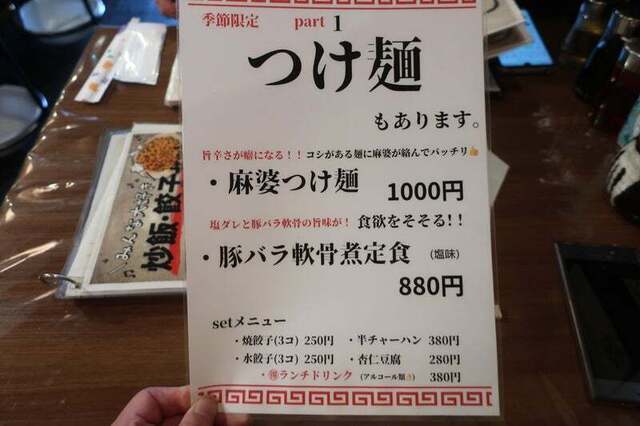 季節限定 part 1
つけ麺
もあります。
旨辛さが癖になる！！コシがある麺に麻婆が絡んでバッチリ👍
・麻婆つけ麺 1000円
塩ダレと豚バラ軟骨の旨味が！食欲をそそる！！
・豚バラ軟骨煮定食 (塩味)
880円
setメニュー
・焼餃子(3コ) 250円 ・半チャーハン 380円
・水餃子(3コ) 250円 ・杏仁豆腐 280円
・㊕ランチドリンク (アルコール類🍻) 380円
みんな大好き
炒飯・餃子